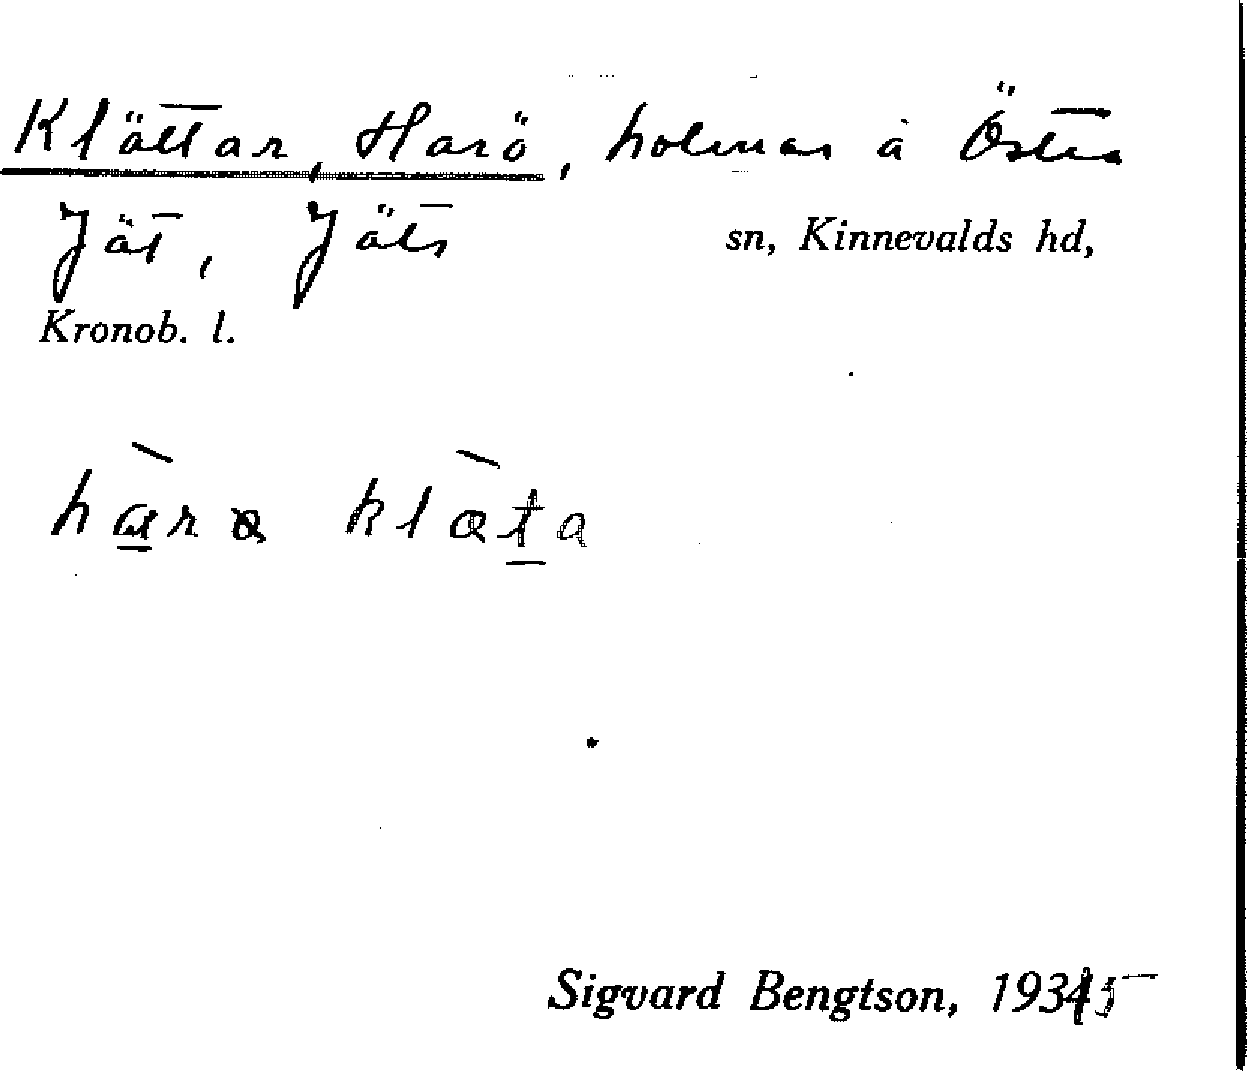 Klättar, Harö, holmar å Östra
Jät, Jäts sn, Kinnevalds hd,
Kronob. l.
hara klæta
Sigvard Bengtson, 1935